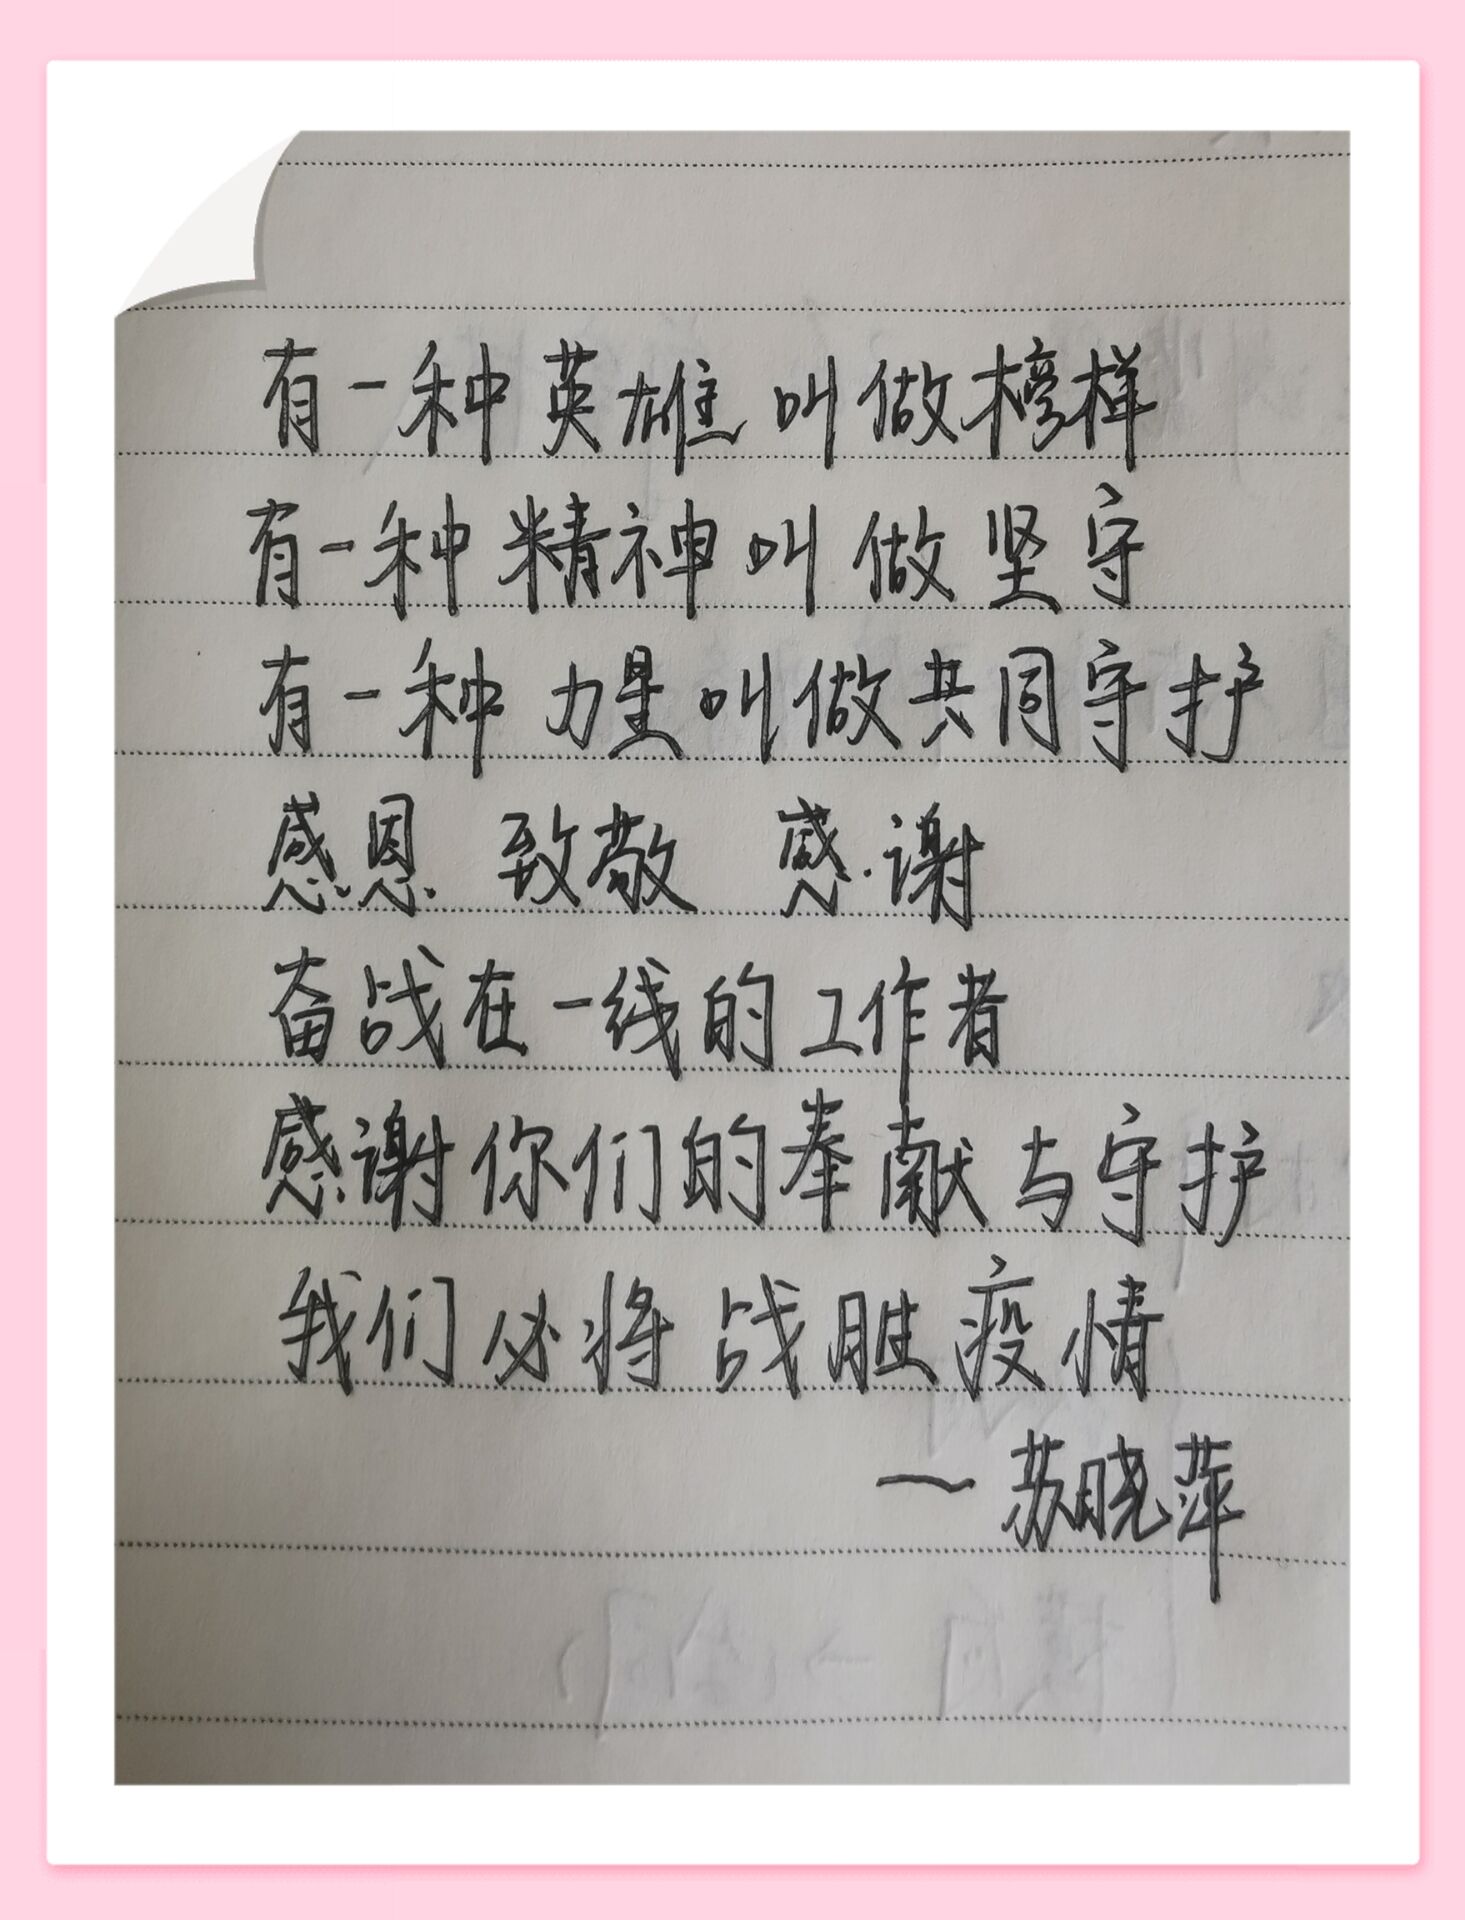 有一种英雄叫做榜样
有一种精神叫做坚守
有一种力量叫做共同守护
感恩 致敬 感谢
奋战在一线的工作者
感谢你们的奉献与守护
我们必将战胜疫情
—苏晓萍